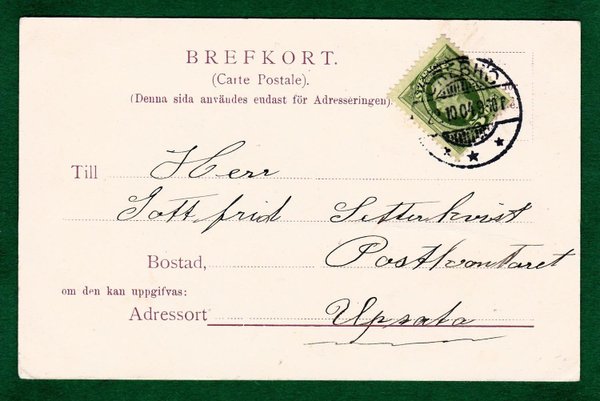 BREFKORT.
(Carte Postale).
(Denna sida användes endast för Adresseringen).
Till Herr
Gottfrid Setterkvist
Bostad, Postkontoret
om den kan uppgifvas:
Adressort Upsala